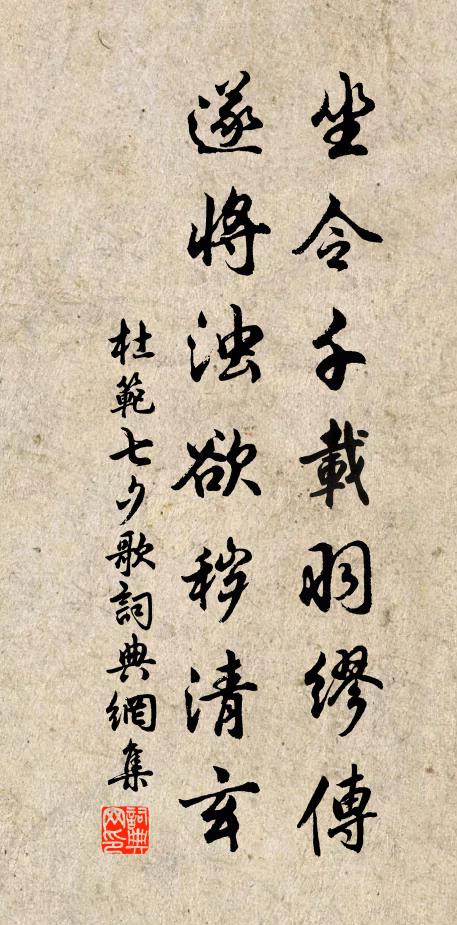 坐令千載羽繆傳
遂將浊欲秽清玄
杜範七夕歌詞典網集
詞典网印